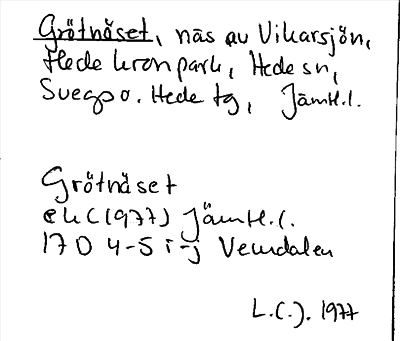 Grötnäset, näs av Vikarsjön,
Hede kronpark, Hede sn,
Svegs o. Hede tg, Jämtl.l.
Grötnäset
ek C (1977) Jämtl.l.
17 D 4-5 i-j Vemdalen
L.C.J. 1977